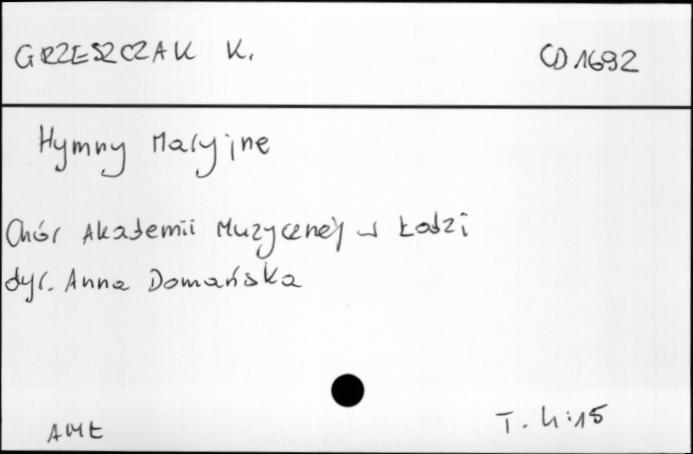 GRZESZCZAK K. CD 1692
Hymny Maryjne
Chór Akademii Muzycznej w Łodzi
dyr. Anna Domańska
AMŁ T. 4:15